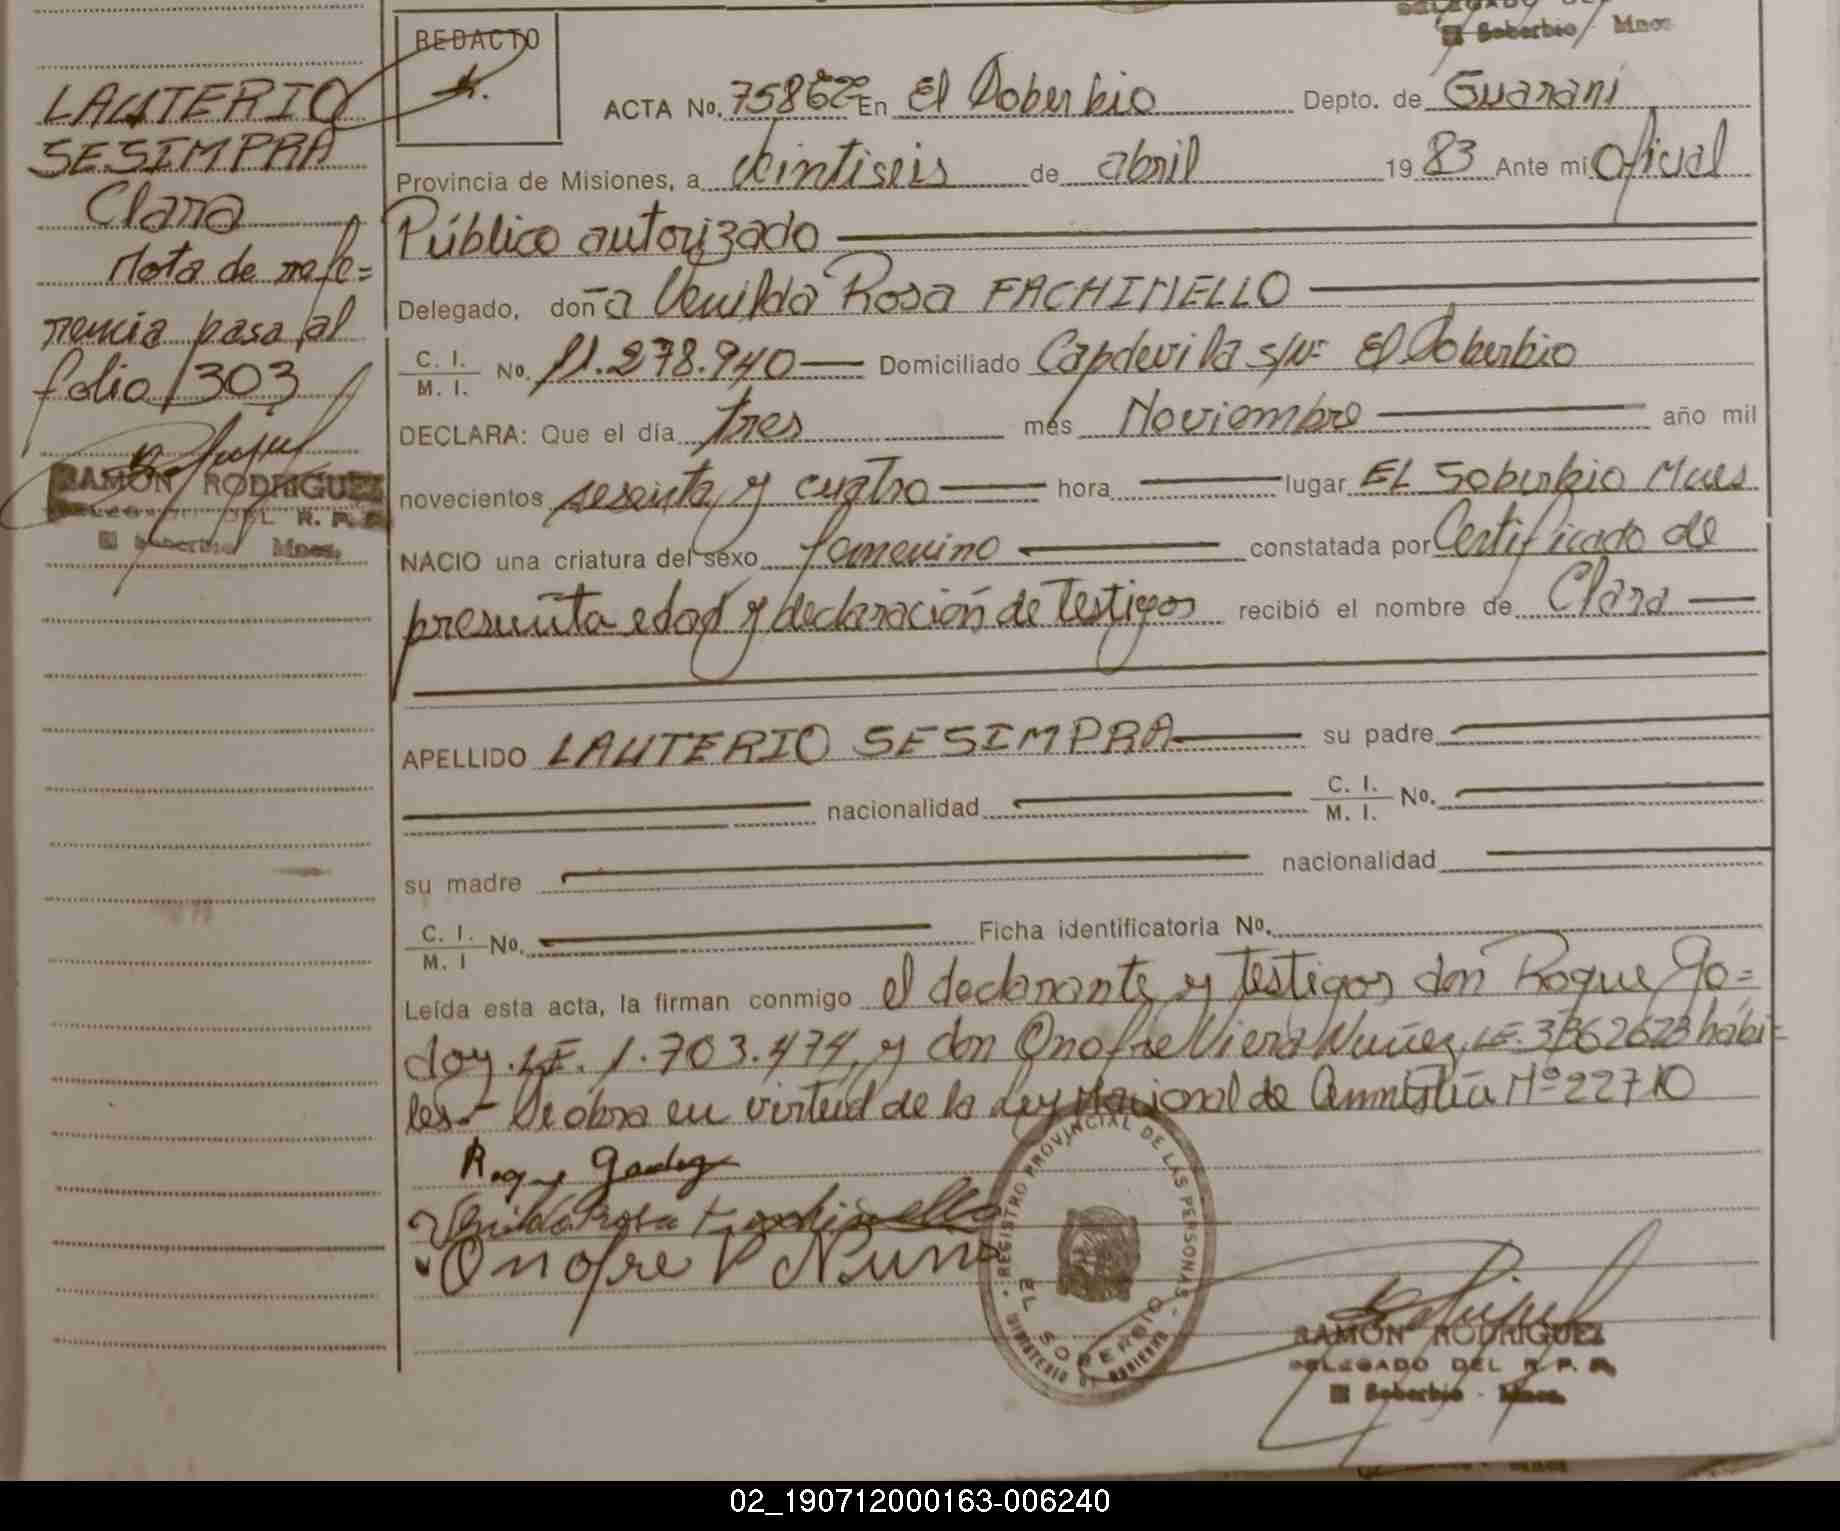 DELEGADO DEL
El Soberbio Mnes
REDACTO
LAUTERIO
SESIMPRA
Clara
Nota de refe=
rencia pasa al
folio 303
RAMON RODRIGUEZ
DELEGADO DEL R. P. P.
El Soberbio Mnes.
ACTA No. 7586 En El Soberbio Depto. de Guarani
Provincia de Misiones, a veintiseis de abril 19 83 Ante mi Oficial
Público autorizado
Delegado, don a Venilda Rosa FACHINELLO
C. I.
M. I. No. 11.278.940 Domiciliado Capdevila s/Nº El Soberbio
DECLARA: Que el día tres mes Noviembre año mil
novecientos sesenta y cuatro hora lugar EL Soberbio Mnes
NACIO una criatura del sexo femenino constatada por Certificado de
presunta edad y declaración de Testigos recibió el nombre de Clara
APELLIDO LAUTERIO SESIMPRA su padre
nacionalidad C. I.
M. I. No.
su madre nacionalidad
C. I.
M. I No. Ficha identificatoria No.
Leída esta acta, la firman conmigo el declarante y testigos don Roque Go=
doy. LE. 1.703.474, y don Onofre Viera Nuñez, LE. hábi-
les.- Se obra en virtud de la Ley Nacional de Ammistía Nº 22710
Roque Godoy
Venilda Rosa Fachinello
Onofre V Nuns
REGISTRO PROVINCIAL DE LAS PERSONAS
EL SOBERBIO
MINISTERIO DE GOBIERNO
RAMON RODRIGUEZ
DELEGADO DEL R. P. P.
El Soberbio - Mnes.
02_190712000163-006240